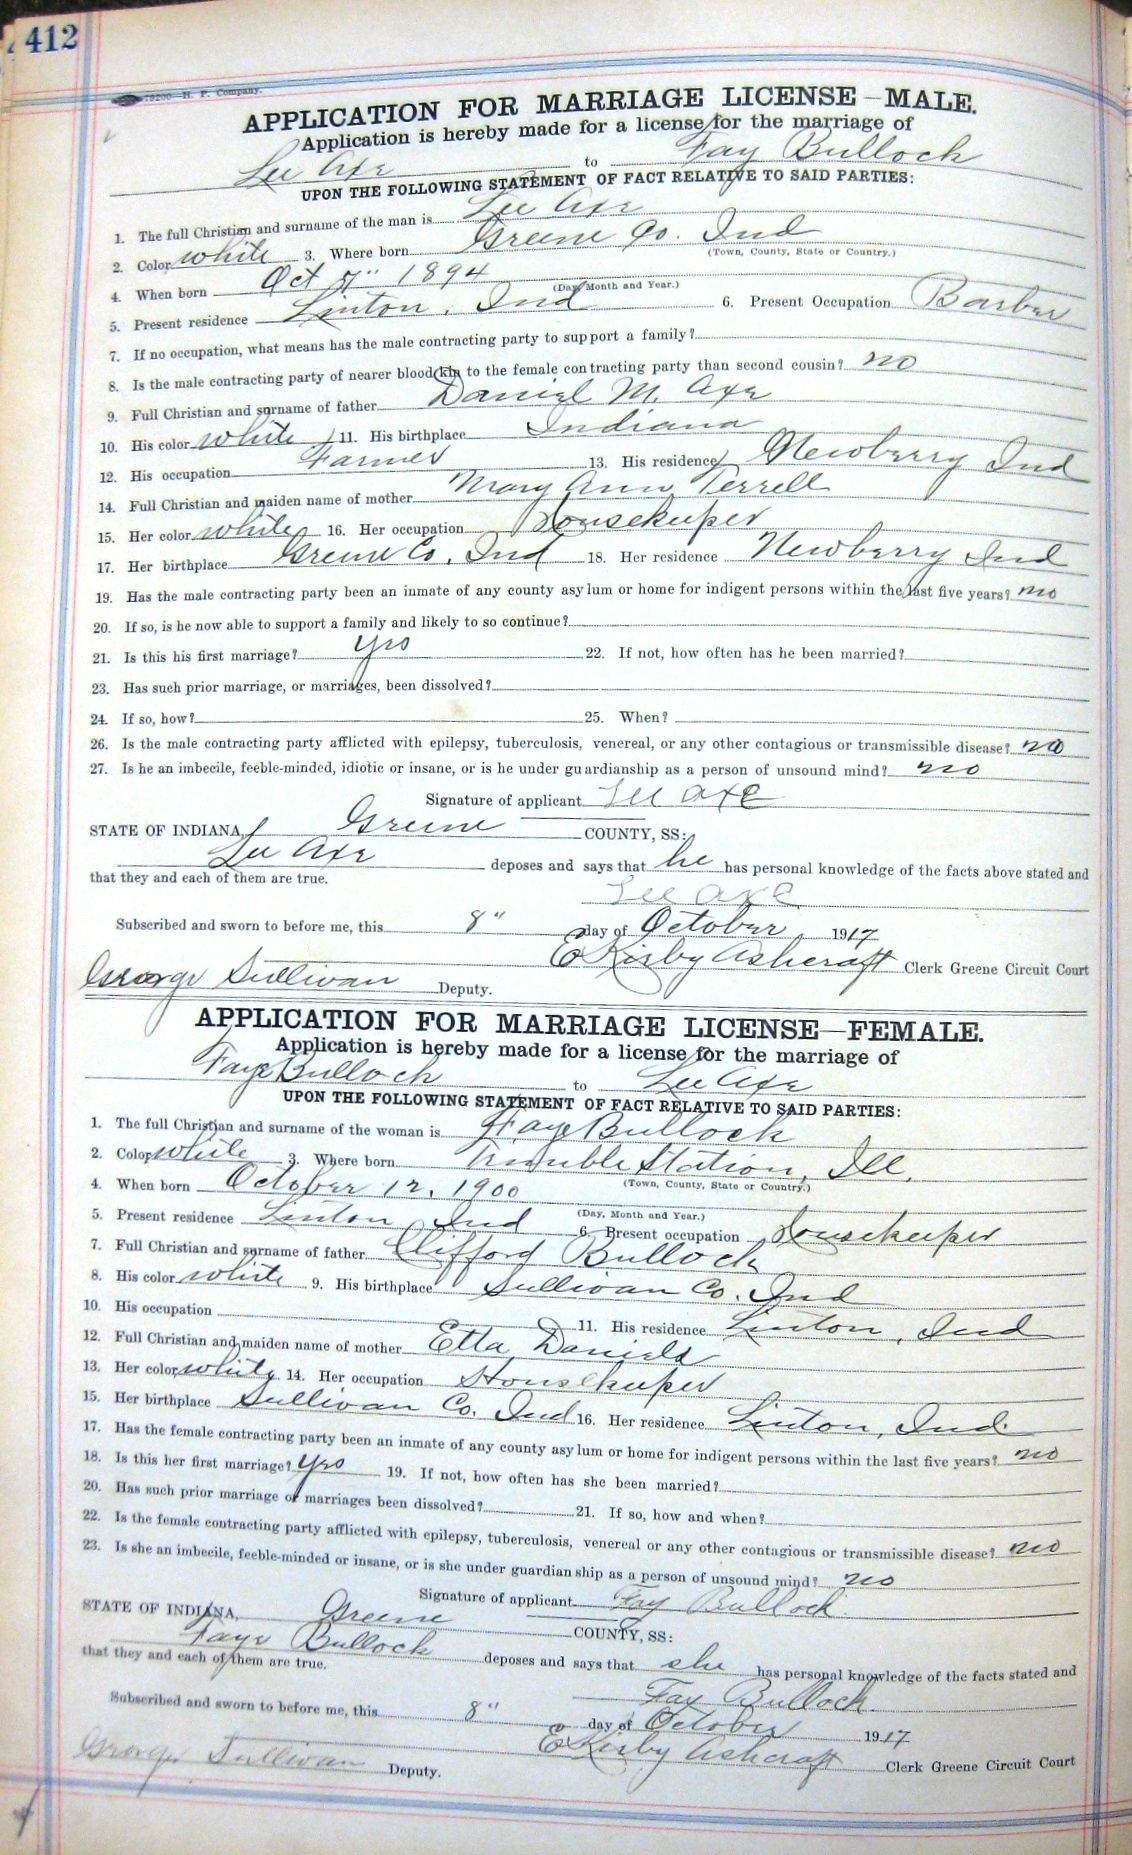 412
79200—H. P. Company.
APPLICATION FOR MARRIAGE LICENSE—MALE.
Application is hereby made for a license for the marriage of
Lee Axe to Fay Bullock
UPON THE FOLLOWING STATEMENT OF FACT RELATIVE TO SAID PARTIES:
1. The full Christian and surname of the man is Lee Axe
2. Color white 3. Where born Greene Co. Ind
(Town, County, State or Country.)
4. When born Oct 7" 1894
(Day, Month and Year.)
5. Present residence Linton, Ind 6. Present Occupation Barber
7. If no occupation, what means has the male contracting party to support a family?
8. Is the male contracting party of nearer blood kin to the female contracting party than second cousin? no
9. Full Christian and surname of father Daniel M. Axe
10. His color white 11. His birthplace Indiana
12. His occupation Farmer 13. His residence Newberry Ind
14. Full Christian and maiden name of mother Mary Ann Terrell
15. Her color white 16. Her occupation Housekeeper
17. Her birthplace Greene Co, Ind 18. Her residence Newberry Ind
19. Has the male contracting party been an inmate of any county asylum or home for indigent persons within the last five years? no
20. If so, is he now able to support a family and likely to so continue?
21. Is this his first marriage? yes 22. If not, how often has he been married?
23. Has such prior marriage, or marriages, been dissolved?
24. If so, how? 25. When?
26. Is the male contracting party afflicted with epilepsy, tuberculosis, venereal, or any other contagious or transmissible disease? no
27. Is he an imbecile, feeble-minded, idiotic or insane, or is he under guardianship as a person of unsound mind? no
Signature of applicant Lee Axe
STATE OF INDIANA, Greene COUNTY, SS:
Lee Axe deposes and says that he has personal knowledge of the facts above stated and
that they and each of them are true.
Lee Axe
Subscribed and sworn to before me, this 8" day of October, 1917
E Kirby Ashcraft Clerk Greene Circuit Court
George Sullivan Deputy.
APPLICATION FOR MARRIAGE LICENSE—FEMALE.
Application is hereby made for a license for the marriage of
Faye Bullock to Lee Axe
UPON THE FOLLOWING STATEMENT OF FACT RELATIVE TO SAID PARTIES:
1. The full Christian and surname of the woman is Faye Bullock
2. Color white 3. Where born Trimble Station, Ill.
(Town, County, State or Country.)
4. When born October 12, 1900
(Day, Month and Year.)
5. Present residence Linton Ind 6. Present occupation Housekeeper
7. Full Christian and surname of father Clifford Bullock
8. His color white 9. His birthplace Sullivan Co. Ind
10. His occupation 11. His residence Linton, Ind
12. Full Christian and maiden name of mother Etta Daniels
13. Her color white 14. Her occupation Housekeeper
15. Her birthplace Sullivan Co. Ind 16. Her residence Linton, Ind.
17. Has the female contracting party been an inmate of any county asylum or home for indigent persons within the last five years? no
18. Is this her first marriage? yes 19. If not, how often has she been married?
20. Has such prior marriage or marriages been dissolved? 21. If so, how and when?
22. Is the female contracting party afflicted with epilepsy, tuberculosis, venereal or any other contagious or transmissible disease? no
23. Is she an imbecile, feeble-minded or insane, or is she under guardianship as a person of unsound mind? no
Signature of applicant Fay Bullock.
STATE OF INDIANA, Greene COUNTY, SS:
Faye Bullock deposes and says that she has personal knowledge of the facts stated and
that they and each of them are true.
Fay Bullock.
Subscribed and sworn to before me, this 8" day of October 1917
E Kirby Ashcraft Clerk Greene Circuit Court
George Sullivan Deputy.